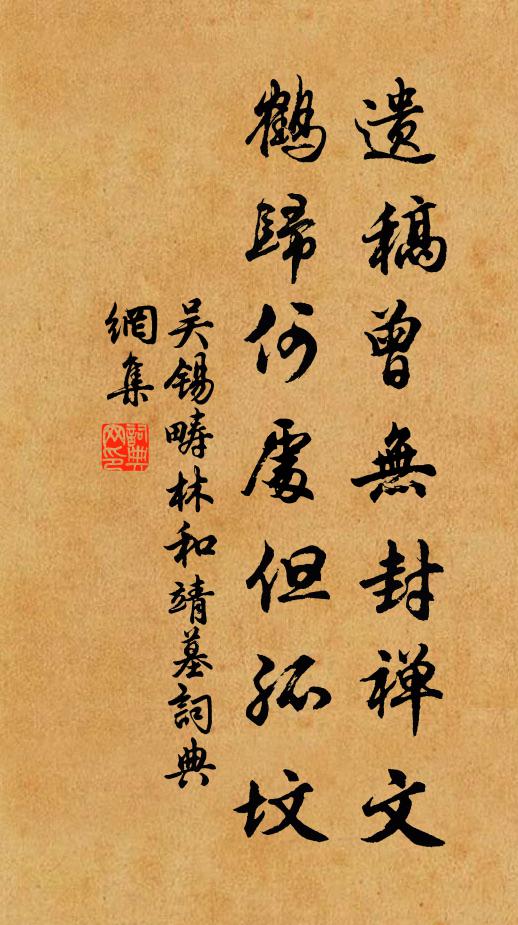 遗稿曾無封禅文
鶴歸何處但孤坟
吴锡畴林和靖墓詞典
網集
詞典
网印